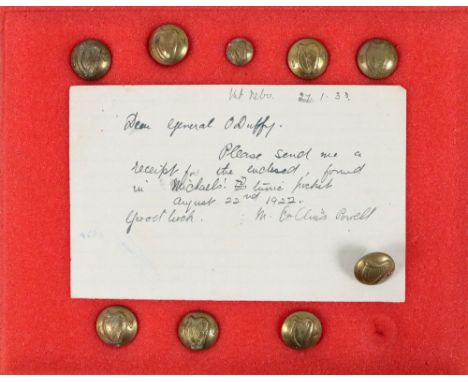 Mt Nebo. 27.1.33
Dear General O Duffy.
Please send me a
receipt for the enclosed, found
in Michaels' tunic pocket
august 22nd 1922.
Good luck. M. Collins Powell